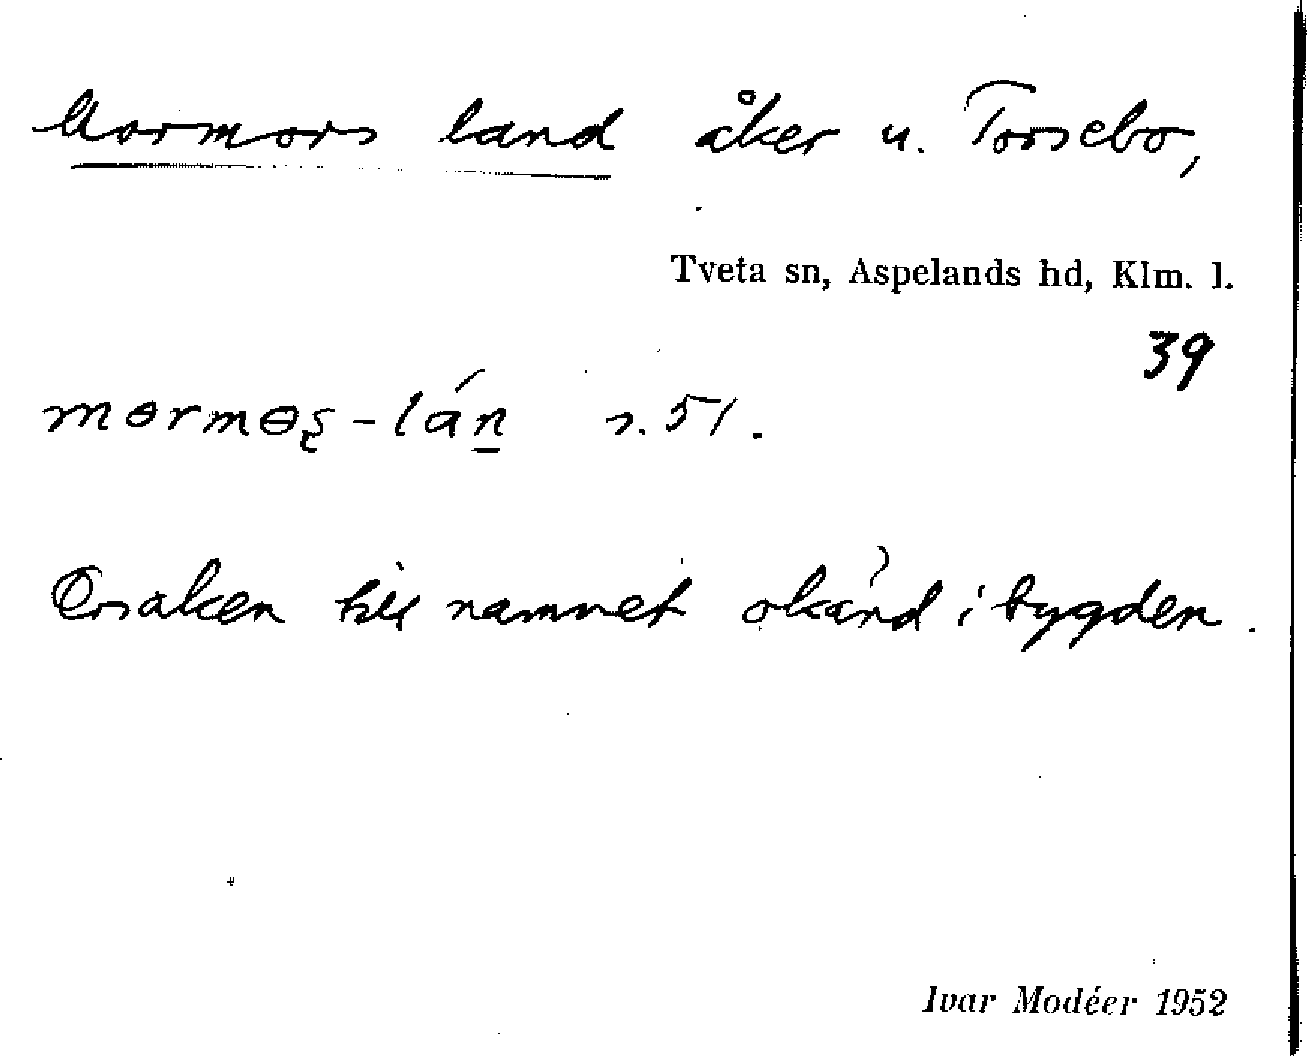 Mormors land åker u. Torsebo,
Tveta sn, Aspelands hd, Klm. l.
39
mɵrmɵʂ-lán s. 51.
Orsaken till namnet okänd i bygden.
Ivar Modéer 1952